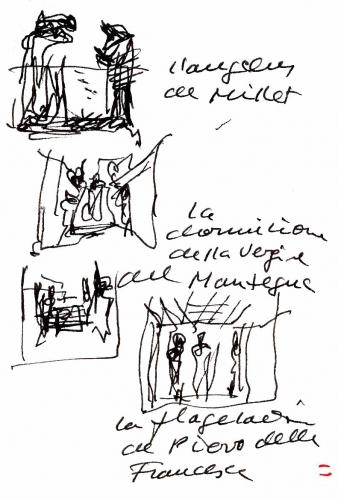 L'angelus
de Millet
La
dormizione
della Vergine
del Mantegna
La flagelación
de Piero della
Francesca